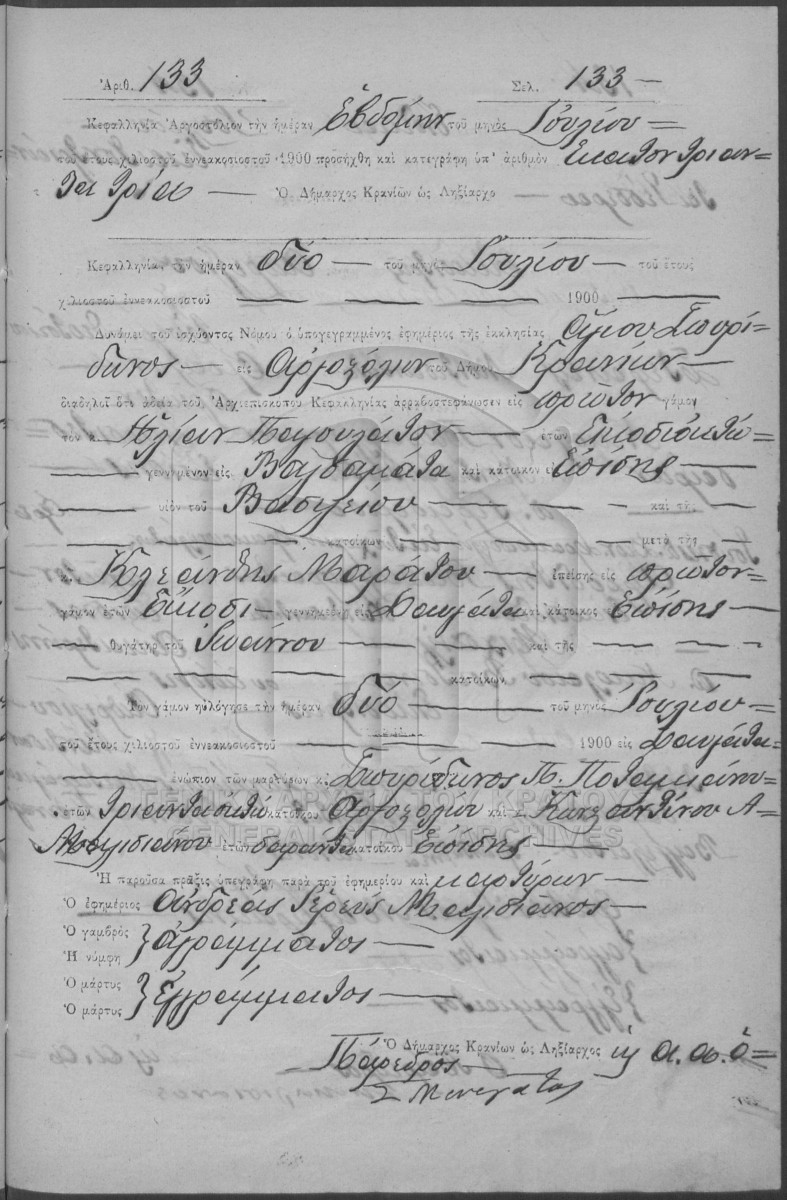 Ἀριθ. 133 Σελ. 133 —
Κεφαλληνία Ἀργοστόλιον τὴν ἡμέραν Ἑβδόμην τοῦ μηνὸς Ἰουλίου =
τοῦ ἔτους χιλιοστοῦ ἐννεακοσιοστοῦ 1900 προσήχθη καὶ κατεγράφη ὑπ' ἀριθμὸν Εκατὸν τριαν-
τα τρία — Ὁ Δήμαρχος Κρανίων ὡς Ληξίαρχο
Κεφαλληνία, τὴν ἡμέραν δύο — τοῦ μηνὸς Ἰουλίου — τοῦ ἔτους
χιλιοστοῦ ἐννεακοσιοστοῦ — — — — 1900 —
Δυνάμει τοῦ ἰσχύοντος Νόμου ὁ ὑπογεγραμμένος ἐφημέριος τῆς ἐκκλησίας Ἁγίου Σπυρί-
δωνος — εἰς Αργοστόλιον τοῦ Δήμου Κρανίων —
διαδηλοῖ ὅτι ἀδεία τοῦ Ἀρχιεπισκόπου Κεφαλληνίας ἀρραβοστεφάνωσεν εἰς πρῶτον γάμον
τὸν κ. Ηλίαν Παγουλάτον — ἐτῶν εικοσιοκτώ =
— γεννημένον εἰς Βαλσαμάτα καὶ κάτοικον εἰς Επίσης —
— υἱὸν τοῦ Βασιλείου — — — καὶ τῆς —
— — — κατοίκων — — — μετὰ τῆς —
κ. Κλεάνθης Μαράτου — ἐπίσης εἰς πρῶτον-
γάμον ἐτῶν Εἴκοσι — γεννημένη εἰς Δαυγάτα καὶ κάτοικος Επίσης —
— θυγάτηρ τοῦ Ἰωάννου — — — καὶ τῆς — — —
— — — κατοίκων — — —
Τὸν γάμον ηὐλόγησε τὴν ἡμέραν δύο — τοῦ μηνὸς Ἰουλίου-
τοῦ ἔτους χιλιοστοῦ ἐννεακοσιοστοῦ — — — 1900 εἰς Δαυγάτα-
— ἐνώπιον τῶν μαρτύρων κ. Σπυρίδωνος Π. Ποταμιάνου-
ἐτῶν τριανταοκτώ κατοίκου Αργοστολίου καὶ κ. Κωνσταντίνου Α-
ἐτῶν σαράντα κατοίκου Επίσης —
Ἡ παροῦσα πρᾶξις ὑπεγράφη παρὰ τοῦ ἐφημερίου καὶ μαρτύρων —
Ὁ ἐφημέριος Ανδρέας Ἱερεὺς —
Ὁ γαμβρὸς
Ἡ νύμφη } ἀγράμματος —
Ὁ μάρτυς
Ὁ μάρτυς } ἐγγράμματος —
Ὁ Δήμαρχος Κρανίων ὡς Ληξίαρχος
Πάρεδρος
ΓΕΝΙΚΑ ΑΡΧΕΙΑ ΤΟΥ ΚΡΑΤΟΥΣ
GENERAL STATE ARCHIVES